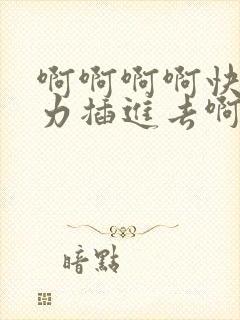 啊啊啊啊快
力插進去啊
暗點